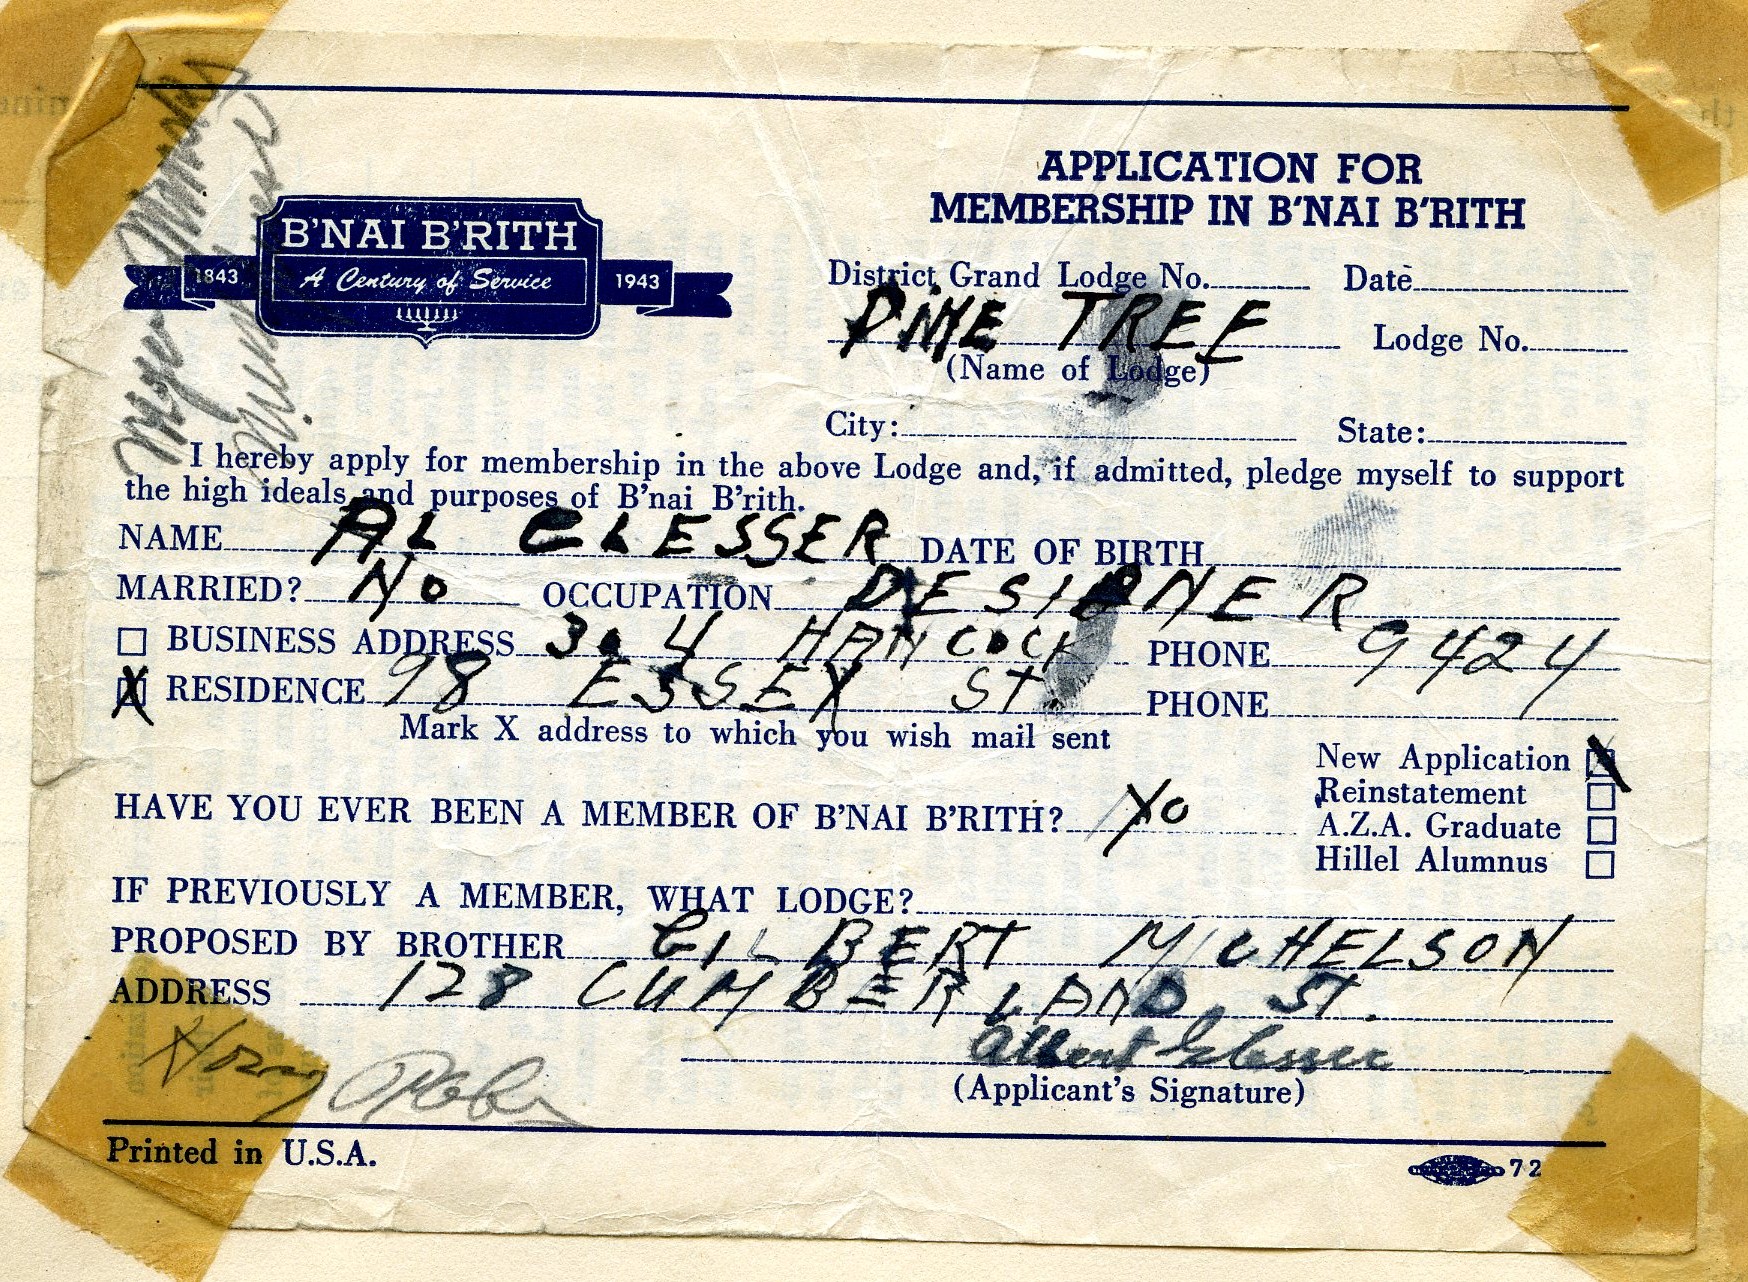 B'NAI B'RITH
1843 A Century of Service 1943
APPLICATION FOR
MEMBERSHIP IN B'NAI B'RITH
District Grand Lodge No. Date
PINE TREE Lodge No.
(Name of Lodge)
City: State:
I hereby apply for membership in the above Lodge and, if admitted, pledge myself to support
the high ideals and purposes of B'nai B'rith.
NAME AL GLESSER DATE OF BIRTH
MARRIED? NO OCCUPATION DESIGNER
BUSINESS ADDRESS 304 HANCOCK PHONE 9424
X RESIDENCE 98 ESSEX ST. PHONE
Mark X address to which you wish mail sent
New Application X
HAVE YOU EVER BEEN A MEMBER OF B'NAI B'RITH? No
Reinstatement
A.Z.A. Graduate
Hillel Alumnus
IF PREVIOUSLY A MEMBER, WHAT LODGE?
PROPOSED BY BROTHER GILBERT MICHELSON
ADDRESS 128 CUMBERLAND ST.
Albert Glesser
(Applicant's Signature)
Printed in U.S.A.
72